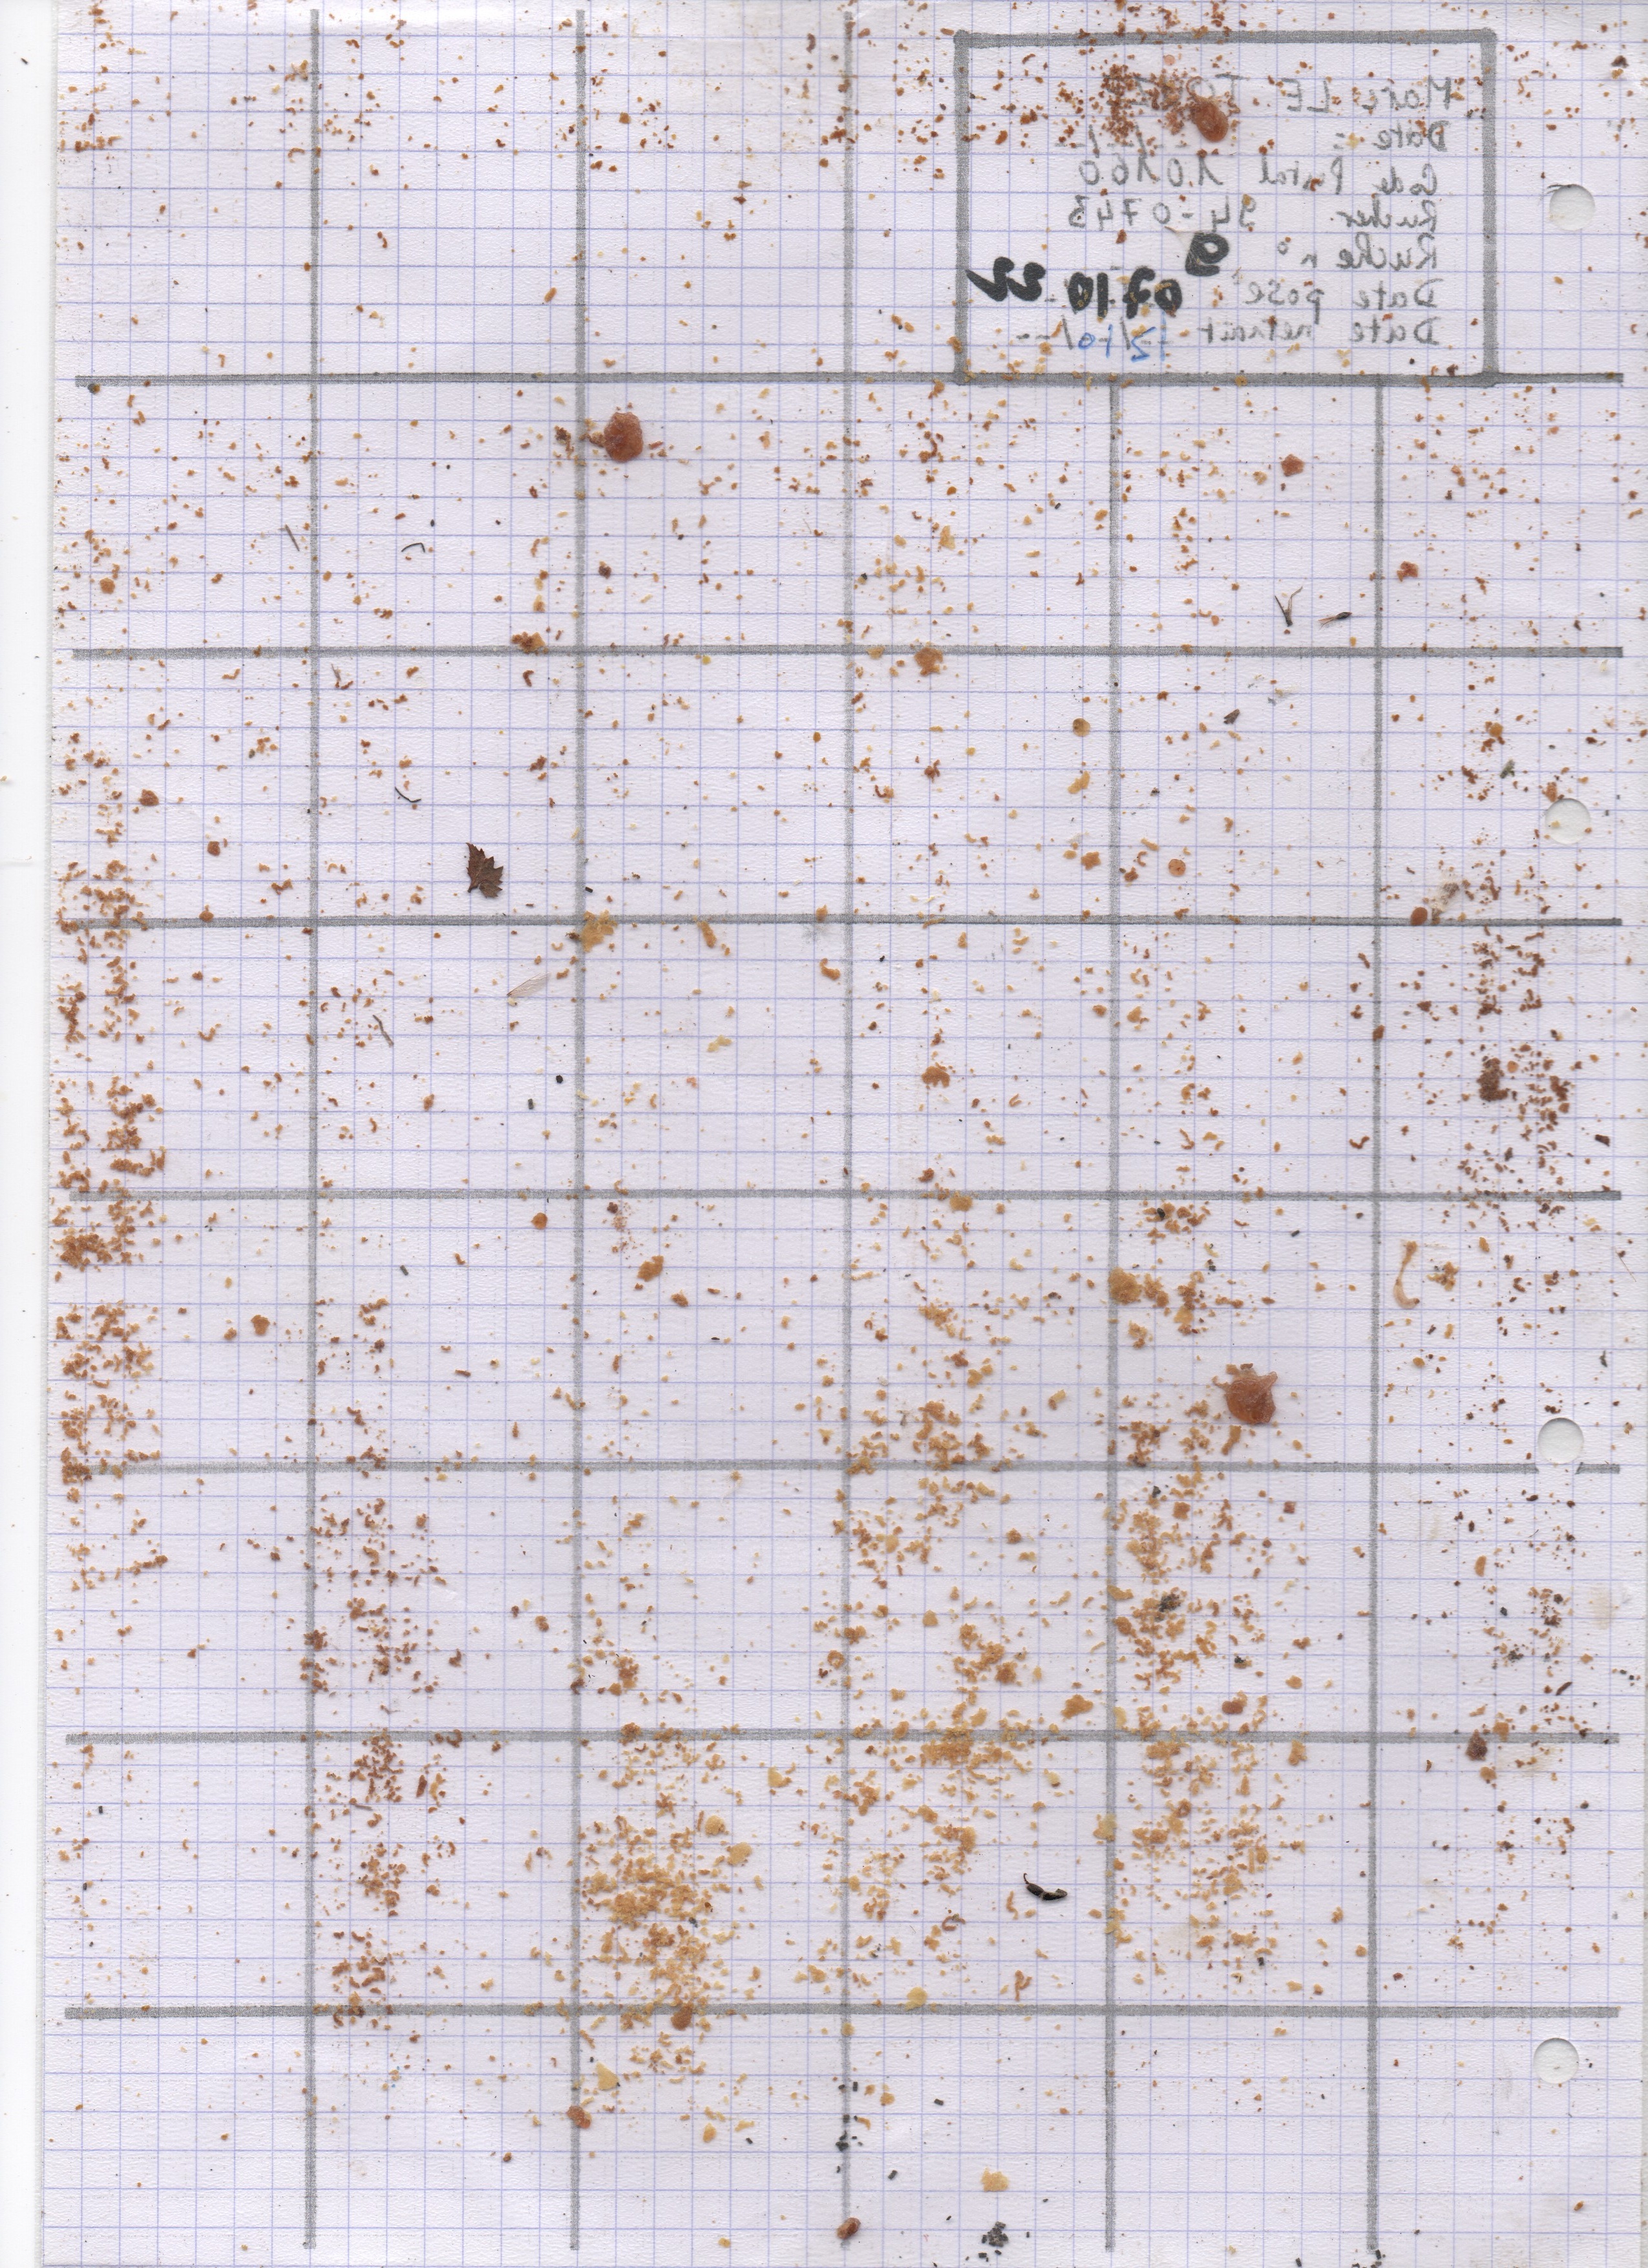 Marc LE
Date :
Code Postal 10160
Rucher 94-0743
Ruche n° 9
Date pose 07 10 22
Date retrait 12/10/--